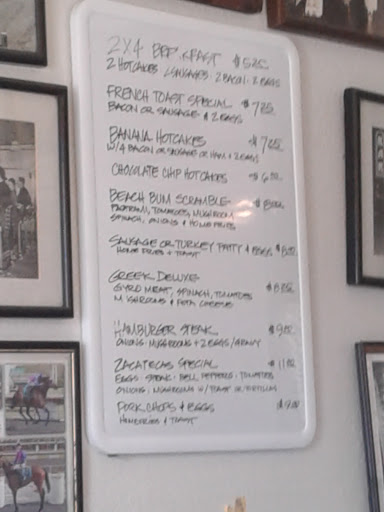 2X4 BRP.KFAST $5.25
2 HOTCAKES 2 SAUSAGES · 2 BACON · 2 EGGS
FRENCH TOAST SPECIAL $7.25
BACON OR SAUSAGE & 2 EGGS
BANANA HOTCAKES $7.25
W/ 4 BACON OR SAUSAGE OR HAM & 2 EGGS
CHOCOLATE CHIP HOTCAKES
BEACH BUM SCRAMBLE
PASTRAMI, TOMATOES, MUSHROOM
SPINACH, ONIONS & HOME FRIES
SAUSAGE OR TURKEY PATTY & EGGS
HOME FRIES & TOAST
GREEK DELUXE
GYRO MEAT, SPINACH, TOMATOES
MUSHROOMS & FETA CHEESE
HAMBURGER STEAK
ONIONS, MUSHROOMS + 2 EGGS/GRAVY
ZACATECAS SPECIAL
EGGS · STEAK · BELL PEPPERS · TOMATOES
ONIONS · MUSHROOMS W/ TOAST OR TORTILLAS
PORK CHOPS & EGGS
HOMEFRIES & TOAST